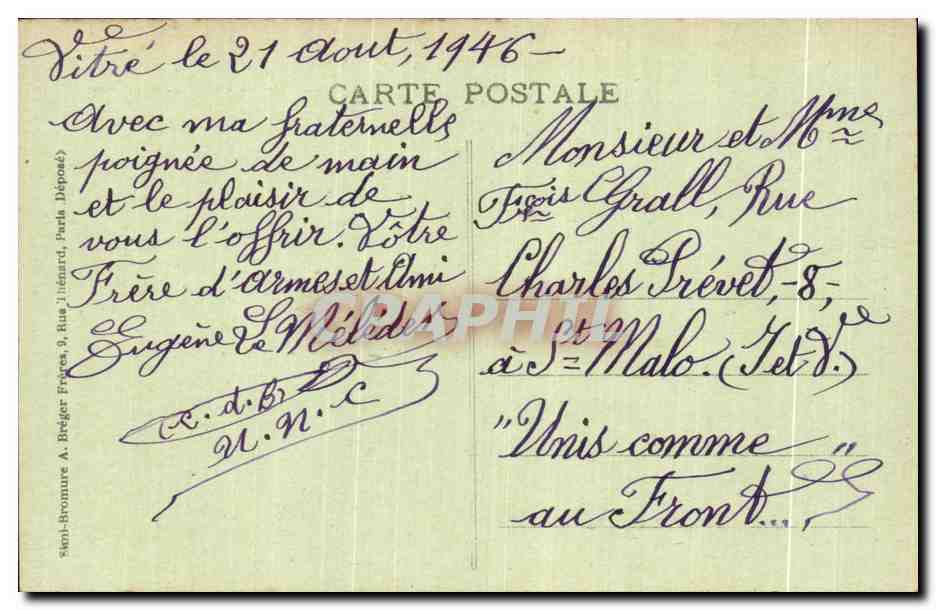 Vitré le 21 Août, 1946 -
CARTE POSTALE
Avec ma fraternelle
poignée de main
et le plaisir de
vous l'offrir. Vôtre
Frère d'armes et Ami
Eugène Le
c. d. B.
U. N. C
Monsieur et Mme
Fçois Grall, Rue
Charles Prévet, -8-,
à St= Malo. (I et Ve)
"Unis comme "
au Front...,
Semi-Bromure A. Bréger Frères, 9, Rue Thénard, Paris (Déposé)
CPAPHIL